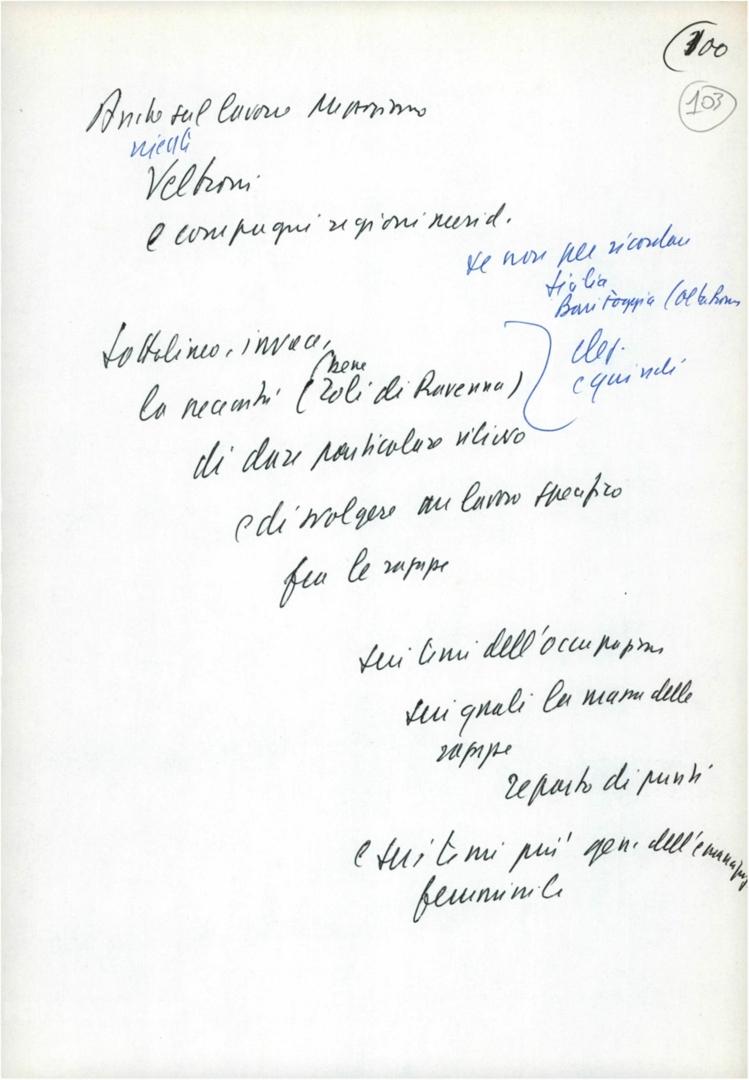 100
103
Anche sul lavoro Mezzogiorno
niente
Veltroni
e compagni regioni merid.
se non per ricordare
Sicilia
Bari Foggia (
e quindi
Sottolineo, invece,
bene
la necessità (Zoli di Ravenna)
di dare particolare rilievo
e di svolgere un lavoro specifico
fra le ragazze
sui temi dell'occupazione
sui quali la massa delle
ragazze
reparto di punta
e sui temi più gen. dell'emancipaz
femminile